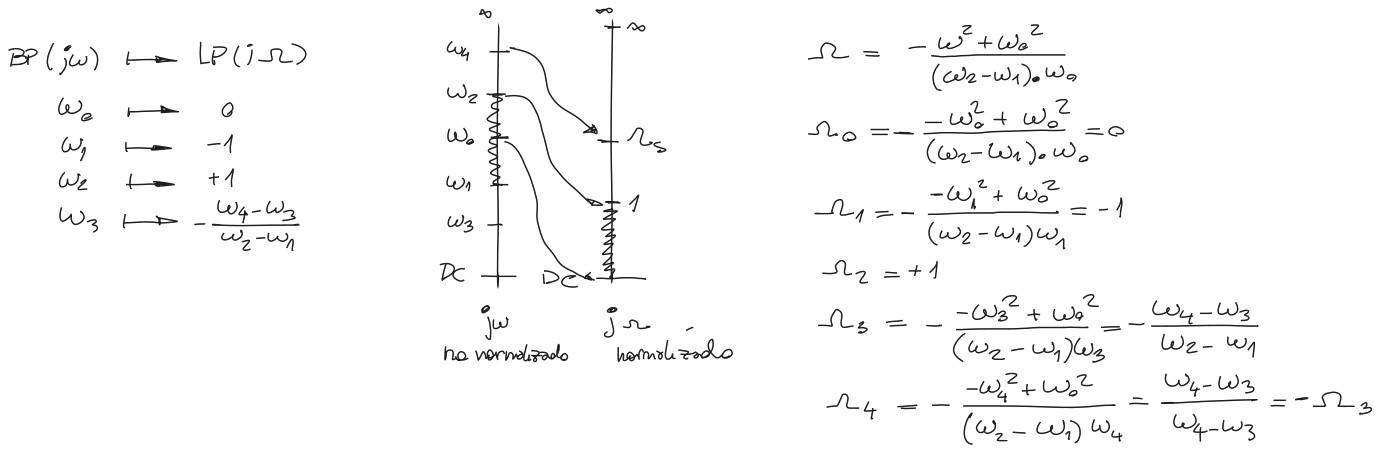 BP(jω) ↦ LP(jΩ)
ω₀ ↦ 0
ω₁ ↦ -1
ω₂ ↦ +1
ω₃ ↦ -(ω₄-ω₃)/(ω₂-ω₁)
∞ ∞
∞
ω₄
ω₂
ω₀ Ωs
ω₁ 1
ω₃
DC DC
jω jΩ
no normalizado normalizado
Ω = - (ω² + ω₀²)/((ω₂-ω₁)·ω₀)
Ω₀ = - (-ω₀² + ω₀²)/((ω₂-ω₁)·ω₀) = 0
Ω₁ = - (-ω₁² + ω₀²)/((ω₂-ω₁)ω₁) = -1
Ω₂ = +1
Ω₃ = - (-ω₃² + ω₀²)/((ω₂-ω₁)ω₃) = - (ω₄-ω₃)/(ω₂-ω₁)
Ω₄ = - (-ω₄² + ω₀²)/((ω₂-ω₁)ω₄) = (ω₄-ω₃)/(ω₄-ω₃) = -Ω₃